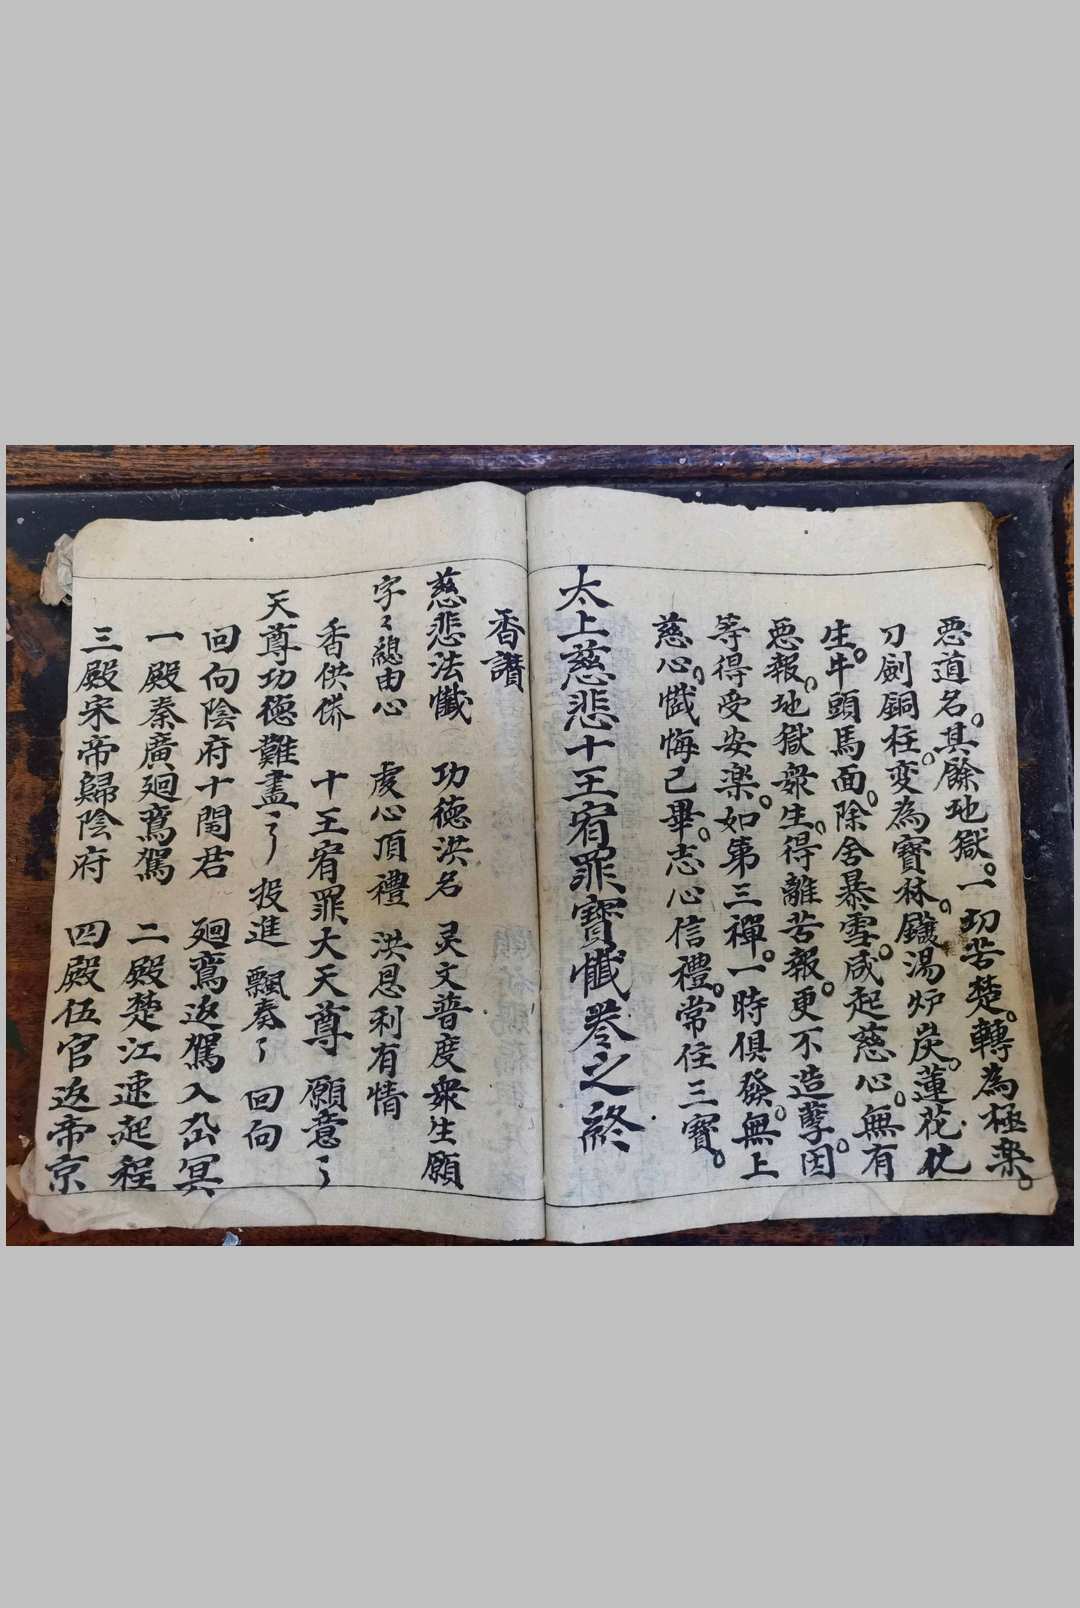 悪道名。其餘地獄。一切苦楚。轉為極楽。
刀劍銅柱。変為寶林。鑊湯炉炭。蓮花化
生。牛頭馬面。除舍暴雪。咸起慈心。無有
悪報。地獄衆生。得離苦報。更不造孽因。
等得受安楽。如第三禪。一時俱發。無上
慈心。懺悔已畢。志心信禮。常住三寶。
太上慈悲十王宥罪寶懺卷之終
香讚
慈悲法懺 功德洪名 灵文普度衆生願
字々總由心 虔心頂禮 洪恩利有情
香供俻 十王宥罪大天尊 願意
天尊功德難盡 投進 飄奏 回向
回向陰府十閻君 廻鸞返駕入冥
一殿秦廣廻鸞駕 二殿楚江速起程
三殿宋帝歸陰府 四殿伍官返帝京